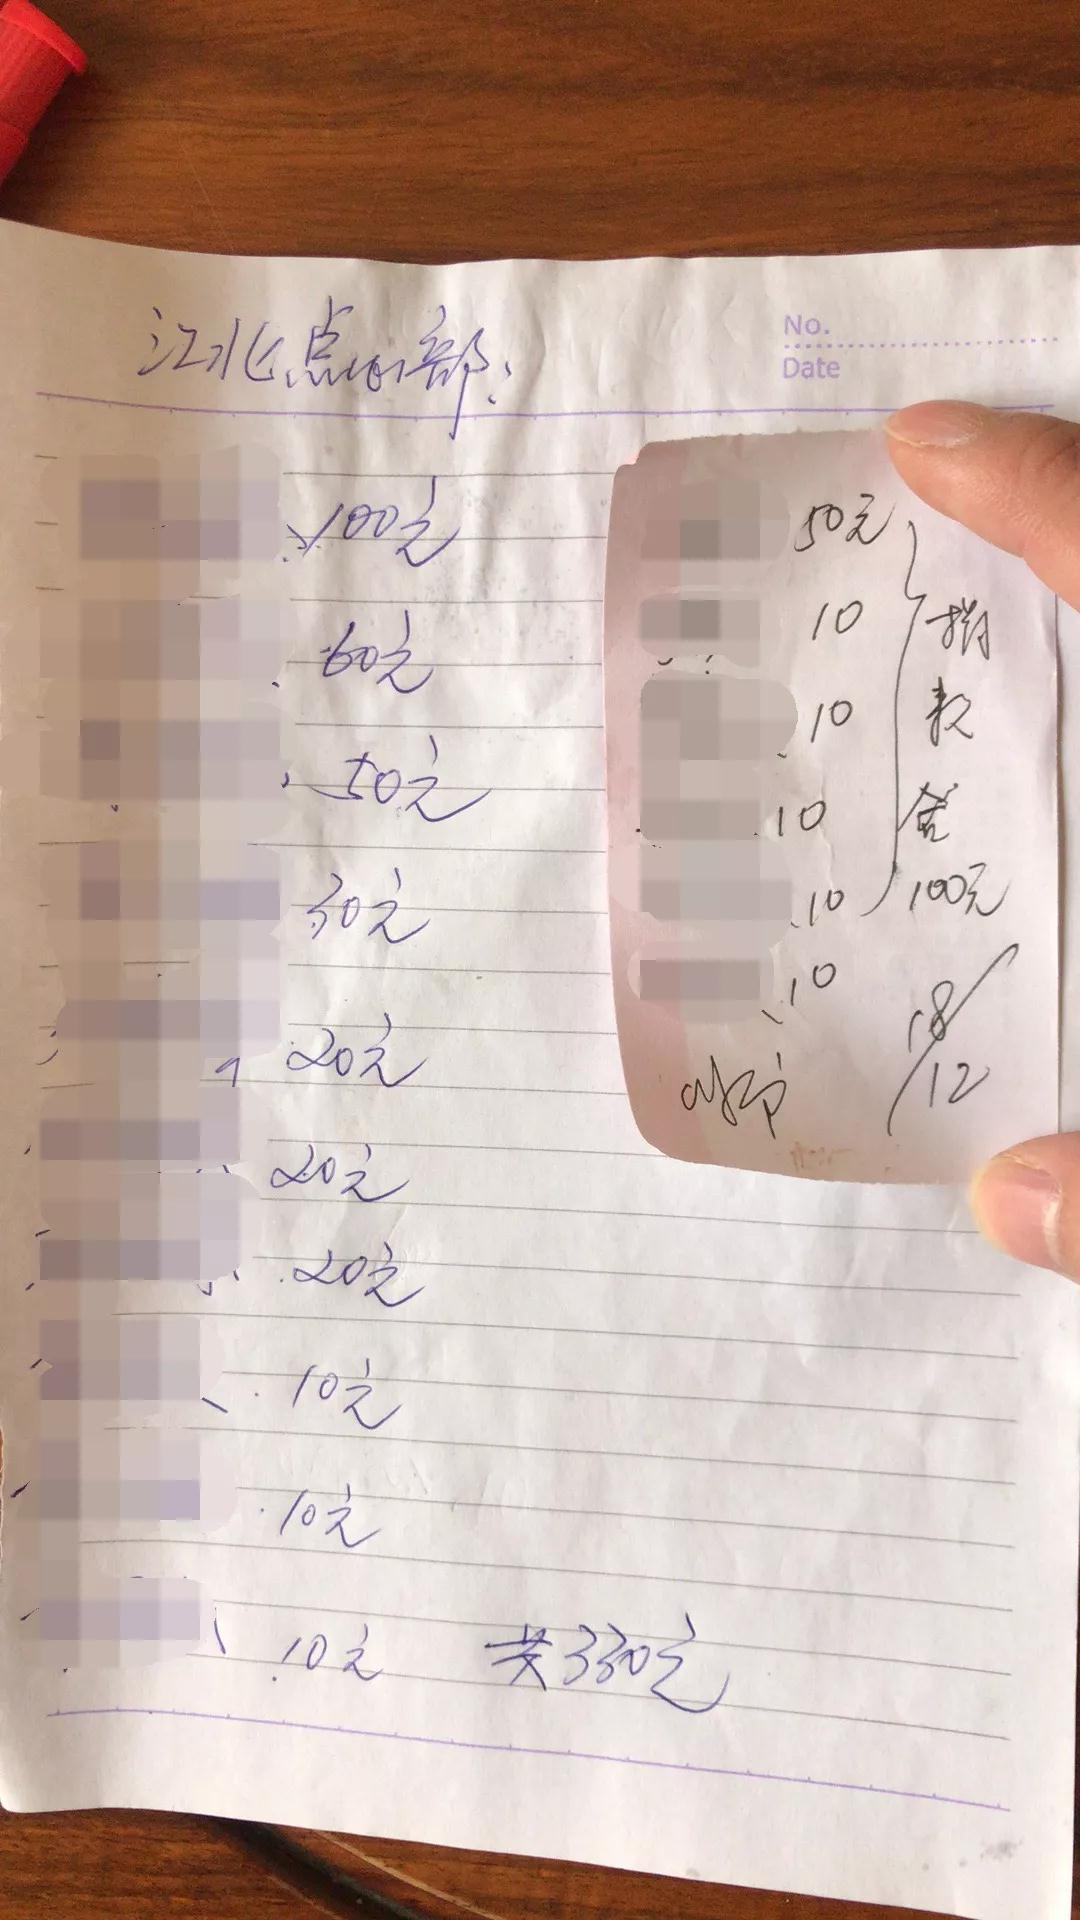 江北点的部:
No.
Date
100元
60元
50元
30元
20元
20元
20元
10元
10元
10元 共330元
50元
10
10
10
10
10
捐
款
金
100元
18/12